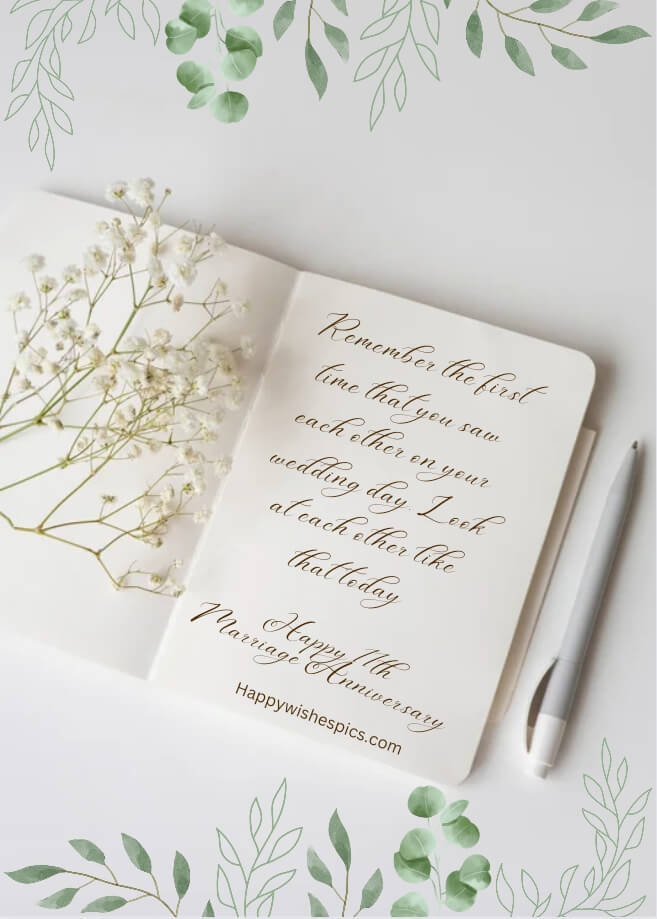 Remember the first
time that you saw
each other on your
wedding day. Look
at each other like
that today
Happy 11th
Marriage Anniversary
Happywishespics.com